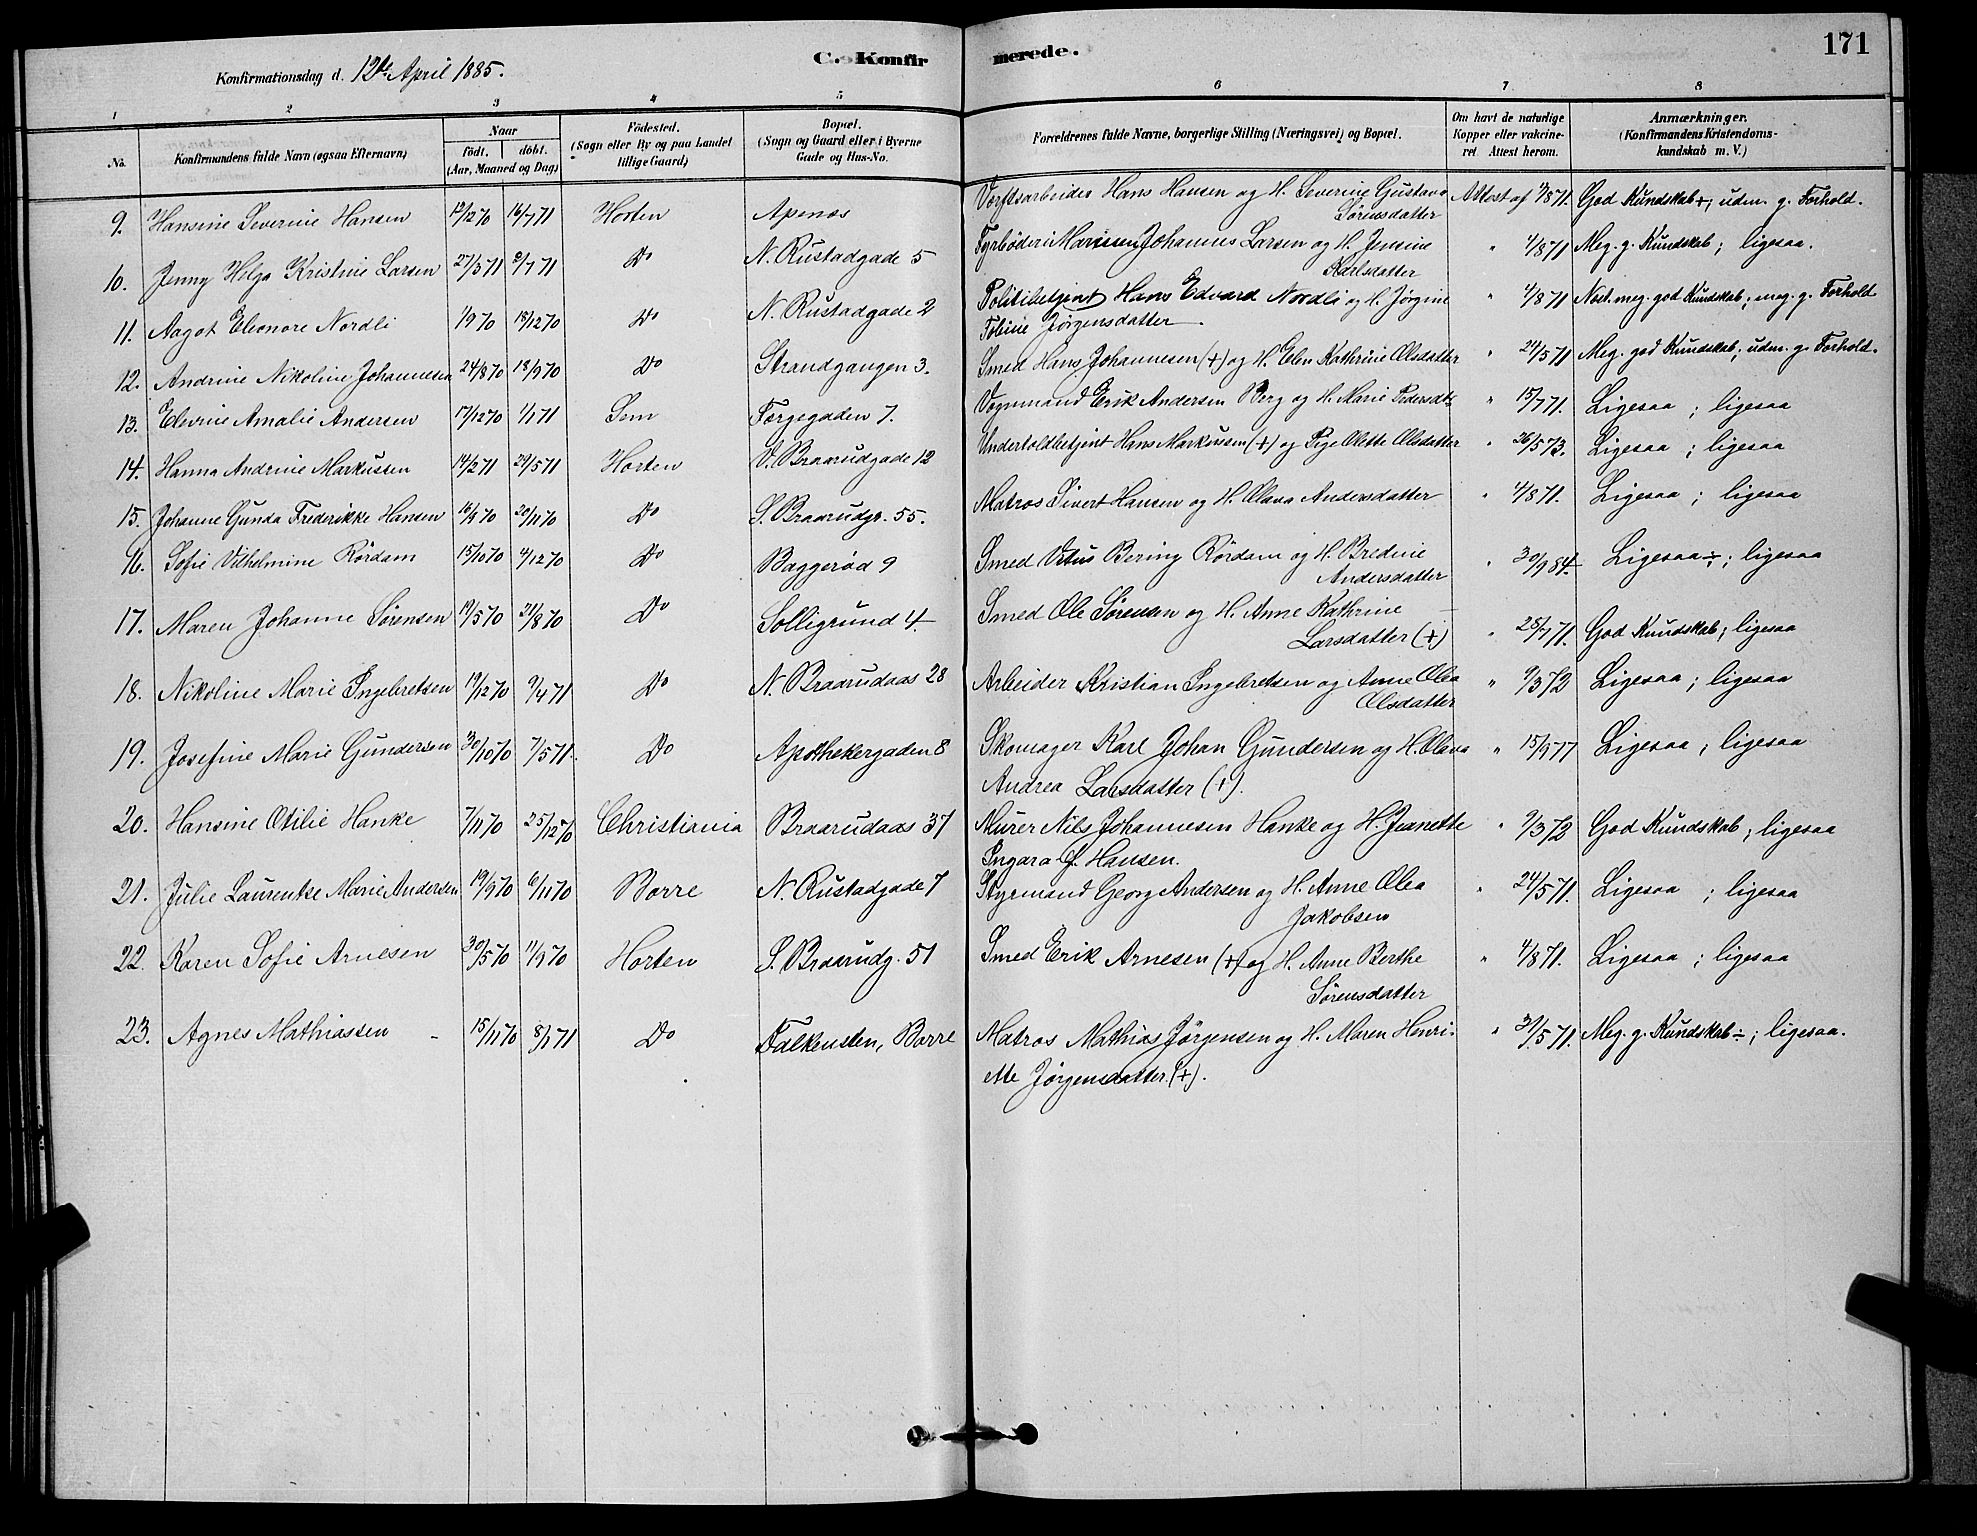 171
C. Konfirmerede.
Konfirmationsdag d. 12te April 1885.
1 2 3 4 5 6 7 8
No. Konfirmandens fulde Navn (ogsaa Efternavn) Naar födt. döbt. (Aar, Maaned og Dag) Födested. (Sogn eller By og paa Landet tillige Gaard) Bopæl. (Sogn og Gaard eller i Byerne Gade og Hus-No. Forældrenes fulde Navne, borgerlige Stilling (Næringsvei) og Bopæl. Om havt de naturlige Kopper eller vakcineret. Attest herom. Anmærkninger. (Konfirmandens Kristendomskundskab m. V.)
9. Hansine Severine Hansen 19/12 70 16/7 71 Horten Apenæs Værftsarbeider Hans Hansen og H. Severine Gustava Sørensdatter Attest af /8 71. God Kundskab+; udm. g. Forhold.
10. Jenny Helga Kristine Larsen 27/3 71 2/7 71 Do N. Rustadgade 5 Fyrbøder i Marinen Johannes Larsen og H. Jensine Karlsdatter " 4/8 71 Meg. g. Kundskab; ligesaa.
11. Aagot Eleonore Nordli 1/9 70 18/12 70 Do N. Rustadgade 2 Politibetjent Hans Edvard Nordli og H. Jørgine " 4/8 71 Næst. meg. god Kundskab; meg. g. Forhold
Tobine Jørgensdatter
12. Andrine Nikoline Johannesen 24/8 70 18/9 70 Do Strandgangen 3. Smed Hans Johannesen (+) og H. Elen Kathrine Olsdatter " 24/5 71 Meg. god Kundskab; udm. g. Forhold.
13. Elevine Amalie Andersen 17/12 70 1/1 71 Sem Torgegaden 7. Vognmand Erik Andersen Berg og H. Marie Pedersdtr " 15/7 71. Ligesaa; ligesaa
14. Hanna Andrine Markussen 14/2 71 29/5 71 Horten V. Braarudgade 12 Undertoldbetjent Hans Markussen (+) og Pige Olette Olsdatter " 26/5 73. Ligesaa; ligesaa
15. Johanne Gunda Frederikke Hansen 16/9 70 20/11 70 Do S. Braarudgr. 55. Matros Sivert Hansen og H. Olava Andersdatter " 4/8 71. Ligesaa; ligesaa
16. Sofie Vilhelmine Rørdam 15/10 70 4/12 70 Do Baggerød 9 Smed Vitus Bering Rørdam og H. Bredine Andersdatter " 30/9 84. Ligesaa÷; ligesaa
17. Maren Johanne Sørensen 19/5 70 21/8 70 Do Solligrund 4. Smed Ole Sørensen og H. Anne Kathrine Larsdatter (+) " 28/7 71. God Kundskab; ligesaa
18. Nikoline Marie Ingebretsen 19/12 70 9/4 71 Do N. Braarudaas 28 Arbeider Kristian Ingebretsen og Anne Olea Olsdatter " 9/3 72 Ligesaa; ligesaa
19. Josefine Marie Gundersen 30/10 70 7/5 71. Do Apothekergaden 8 Skomager Karl Johan Gundersen og H. Olava " 15/9 77 Ligesaa; ligesaa
Andrea Larsdatter (+).
20. Hansine Otilie Hanke 7/11 70 25/12 70 Christiania Braarudaas 37 Murer Nils Johannesen Hanke og H. Jeanette " 9/3 72 God Kundskab; ligesaa
Ingara f. Hansen.
21. Julie Laurentze Marie Andersen 19/9 70 6/11 70 Borre N. Rustadgade 7 Styrmand Georg Andersen og H. Anne Olea Jakobsen " 24/5 71. Ligesaa; ligesaa
22. Karen Sofie Arnesen 30/5 70 11/9 70 Horten S. Braarudg. 51 Smed Erik Arnesen (+) og H. Anne Berthe Sørensdatter " 4/8 71. Ligesaa; ligesaa
23. Agnes Mathiassen 15/11 70 8/1 71 Do Falkensten, Borre Matros Mathias Jørgensen og H. Maren Henri- " 31/5 71. Meg. g. Kundskab÷; ligesaa.
ette Jørgensdatter (+).